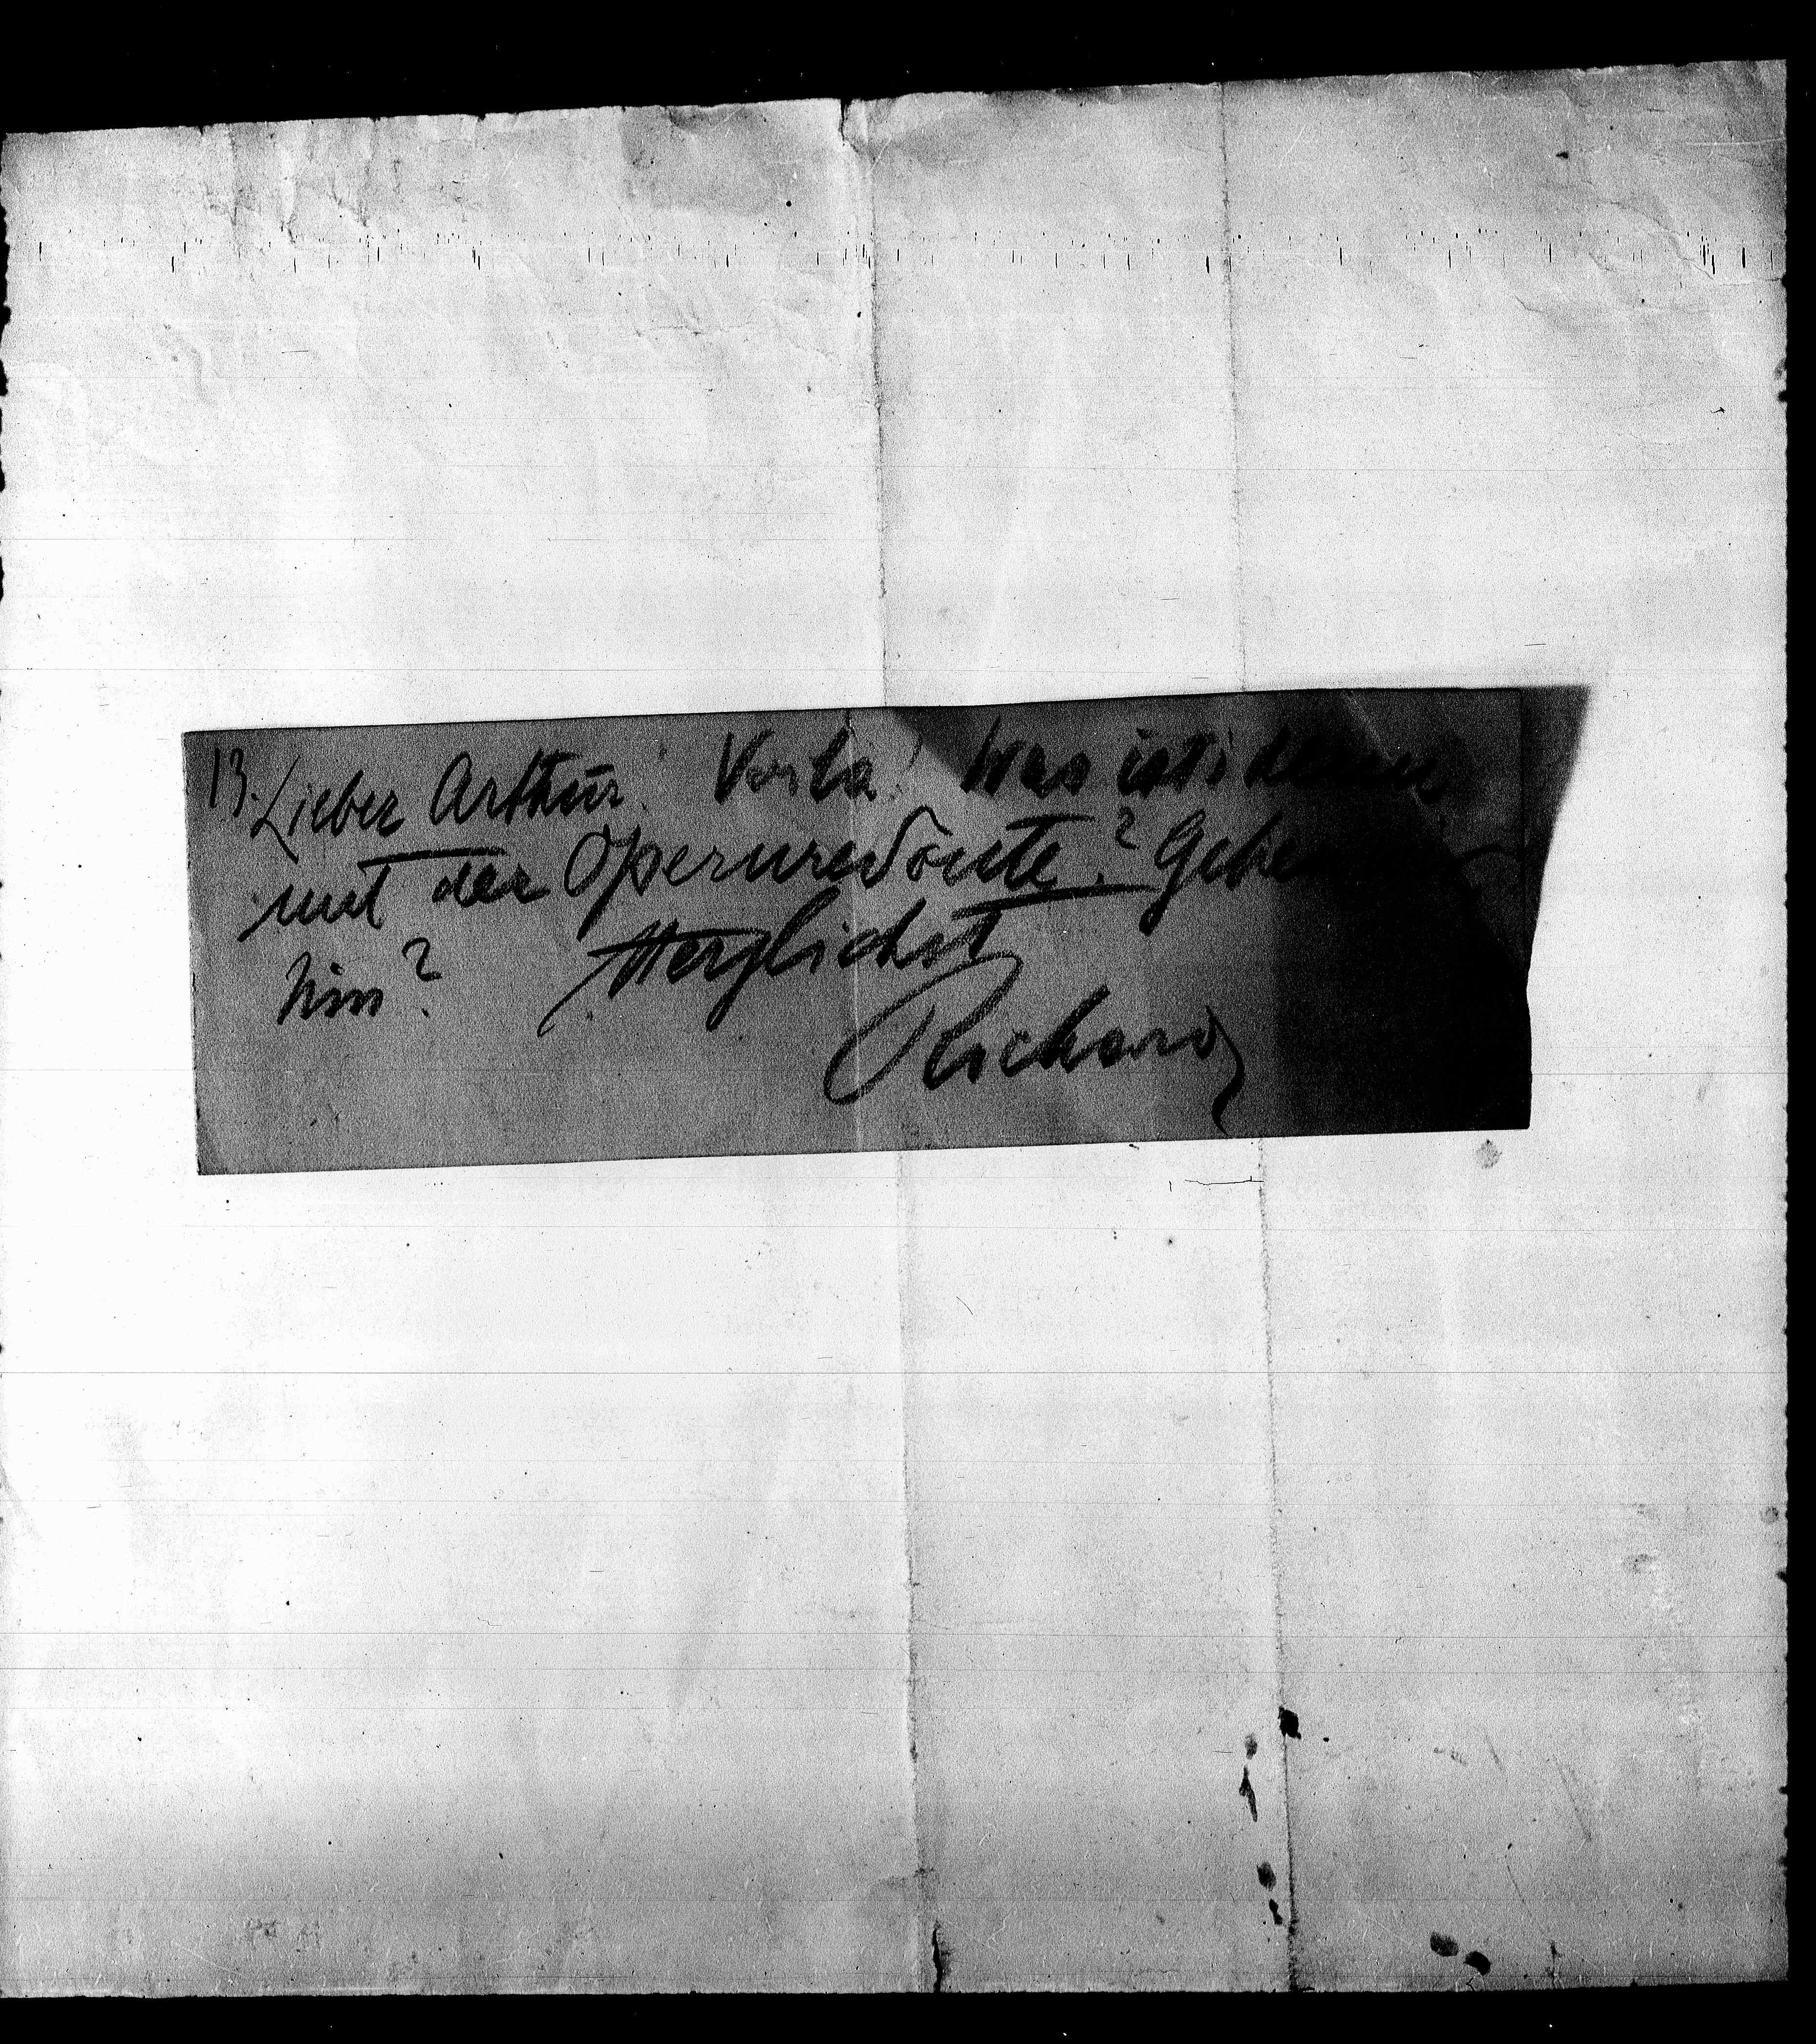 13. Lieber Arthur! Voila! Was ist denn
mit der Opernredoute? Gehen
hin? Herzlichst
Richard